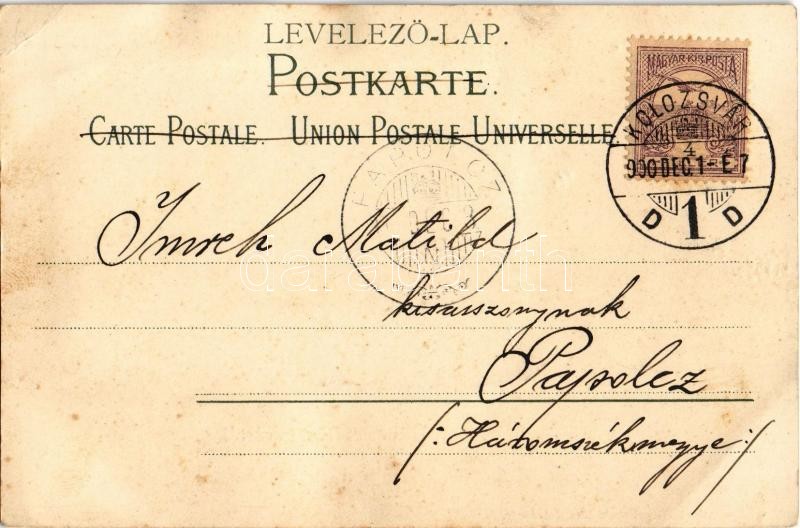 LEVELEZŐ-LAP.
POSTKARTE.
CARTE POSTALE. UNION POSTALE UNIVERSELLE.
MAGYAR·KIR·POSTA
KOLOZSVÁR
4
900 DEC. 1 - É 7
D 1 D
PAPOLCZ
Imreh Matild
kisasszonynak
Papolcz
/: Háromszékmegye :/
darabanth